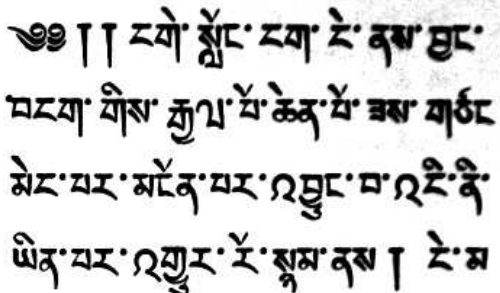 ༄༅། །དགེ་སློང་དག་དེ་ནས་བྱང་
བདག་གིས་རྒྱལ་པོ་ཆེན་པོ་ཟས་གཙང་
མེད་པར་མངོན་པར་འབྱུང་བ་འདི་ནི་
ཡིན་པར་འགྱུར་རོ་སྙམ་ནས། དེ་མ